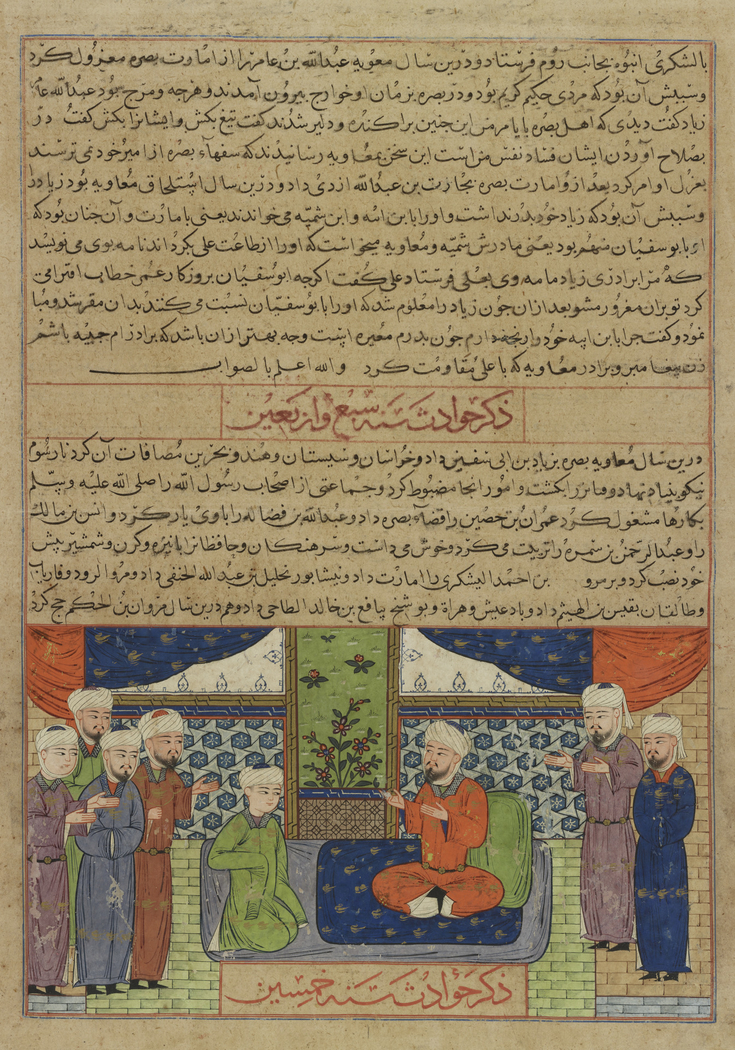 با لشکری انبوه بجانب روم فرستاد و درین سال معویه عبدالله بن عامر را از امارت بصره معزول کرد
وسببش آن بود که مردی حکیم کریم بود و در بصره بزمان او خوارج بیرون آمدند و هرجه ومرج بود عبدالله عامر
زیاد کفت دیدی که اهل بصره با یا مر من این جنین براکنده و دلیر شدند کفت تیغ بکش و ایشانرا بکش کفت در
بصلاح آوردن ایشان فساد نفس من است این سخن بمعاویه رسانیدند که سفهاء بصره از امیر خود نمی ترسند
بعزل او امر کرد بعد ازو امارت بصره بحارث بن عبدالله ازدی داد و درین سال استلحاق معاویه بود زیاد را
وسببش آن بود که زیاد خود بدر نداشت و اورا بابن امه وابن سمیه می خواندند یعنی با مادرت و آن جنان بود که
ای با بوسفیان متهم بود یعنی مادرش سمیه ومعاویه میخواست که اورا از طاعت علی بکرداند نامه بوی می نویسد
که مرا برادری زیاد نامه وی بعلی فرستاد علی کفت اکرجه ابوسفیان بروزکار عمر خطاب اقترامی
کرد تو بران مغرور مشو بعد ازان جون زیاد را معلوم شد که اورا با بوسفیان نسبت می کنند بدان مقر شد و مبا
نمود و کفت جرا با بن ابیه خود وا رنجه دارم جون بدرم مغیره است وجه بهتر ازان باشد که برادر ام حبیبه باشم
زن پیغامبر و برادر معاویه که با علی مقاومت کرد والله اعلم بالصواب
ذکر حوادث سنه سبع و اربعین
درین سال معاویه بصره بزیاد بن ابی سفین داد و خراسان وسیستان و هند و بحرین مضافات آن کرد تا رسوم
نیکو بنیاد نهاد و فاسقان را بکشت و امور انجا مضبوط کرد و جماعتی از اصحاب رسول الله را صلی الله علیه وسلم
بکارها مشغول کرد عمران بن حصین را قضاء بصره داد و عبدالله بن فضاله را با وی یار کرد و انس بن مالک
را و عبدالرحمن بن سمره را تربیت می کرد و خوش می داشت و سرهنکان و حافظانرا با نیزه و کرز و شمشیر پیش
خود نصب کرد و بر مرو بن احمد الیشکری را امارت داد و نیشابور تحلیل بن عبدالله الحنفی داد و مروالرود و فاریاب
وطالقان بقیس بن الهیثم داد و بادغیس و هراة و بوشنج بنافع بن خالد الطاحی داد و هم درین سال مروان بن الحکم حج کرد
ذکر حوادث سنه خمسین